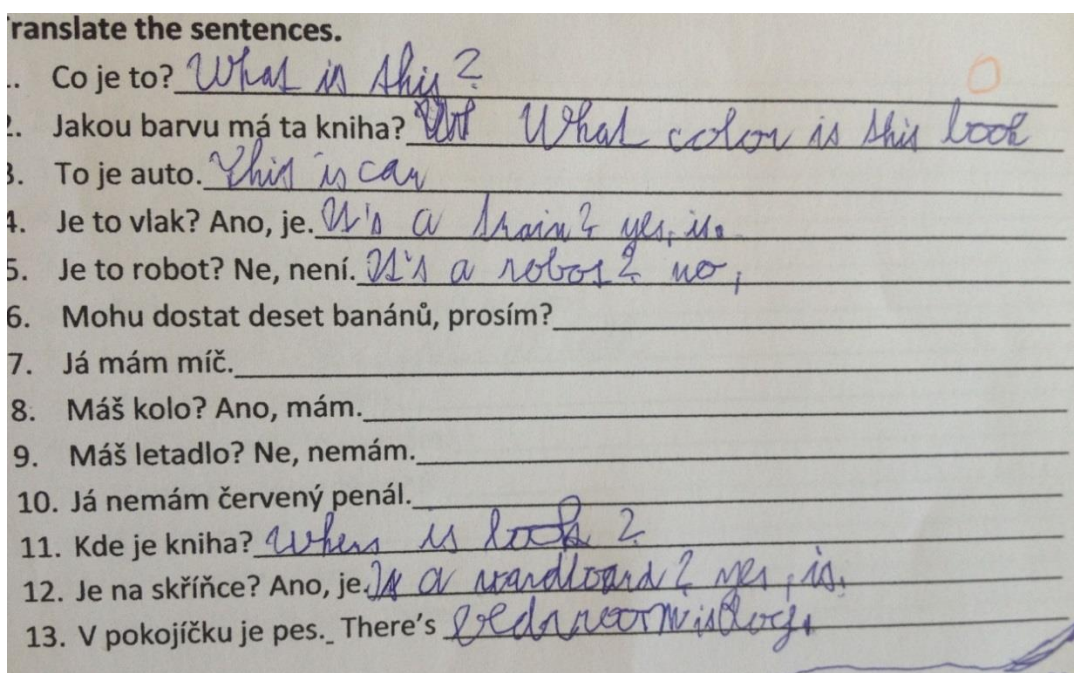 ranslate the sentences.
. Co je to? What is this?
2. Jakou barvu má ta kniha? What color is this book
3. To je auto. This is car
4. Je to vlak? Ano, je. It's a train? yes, is.
5. Je to robot? Ne, není. It's a robot? no,
6. Mohu dostat deset banánů, prosím?
7. Já mám míč.
8. Máš kolo? Ano, mám.
9. Máš letadlo? Ne, nemám.
10. Já nemám červený penál.
11. Kde je kniha? Where is book?
12. Je na skříňce? Ano, je. Is a ? yes, is.
13. V pokojíčku je pes. There's is dog.